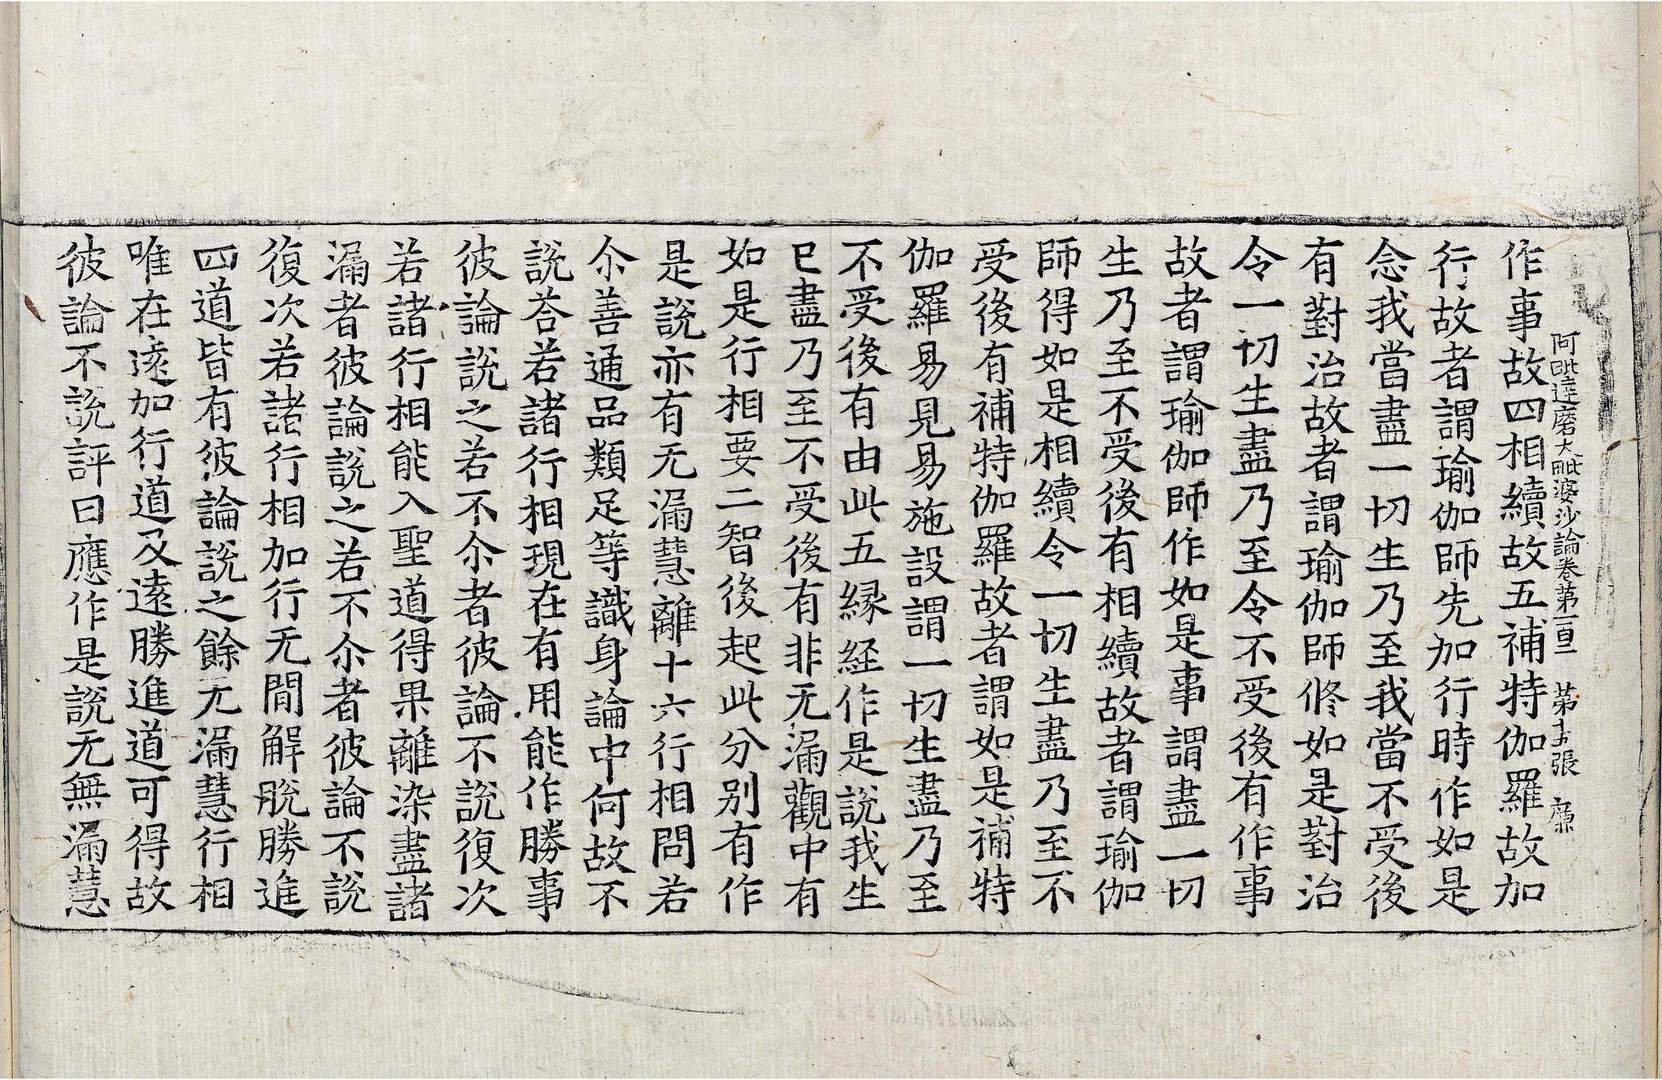 阿毗達磨大毗婆沙論卷第一百二　第十五張　廉
作事故四相續故五補特伽羅故加
行故者謂瑜伽師先加行時作如是
念我當盡一切生乃至我當不受後
有對治故者謂瑜伽師修如是對治
令一切生盡乃至令不受後有作事
故者謂瑜伽師作如是事謂盡一切
生乃至不受後有相續故者謂瑜伽
師得如是相續令一切生盡乃至不
受後有補特伽羅故者謂如是補特
伽羅易見易施設謂一切生盡乃至
不受後有由此五縁経作是說我生
已盡乃至不受後有非无漏觀中有
如是行相要二智後起此分別有作
是說亦有无漏慧離十六行相問若
尒善通品類足等識身論中何故不
說荅若諸行相現在有用能作勝事
彼論說之若不尒者彼論不說復次
若諸行相能入聖道得果離染盡諸
漏者彼論說之若不尒者彼論不說
復次若諸行相加行无間解脫勝進
四道皆有彼論說之餘无漏慧行相
唯在遠加行道及遠勝進道可得故
彼論不說評曰應作是說无無漏慧